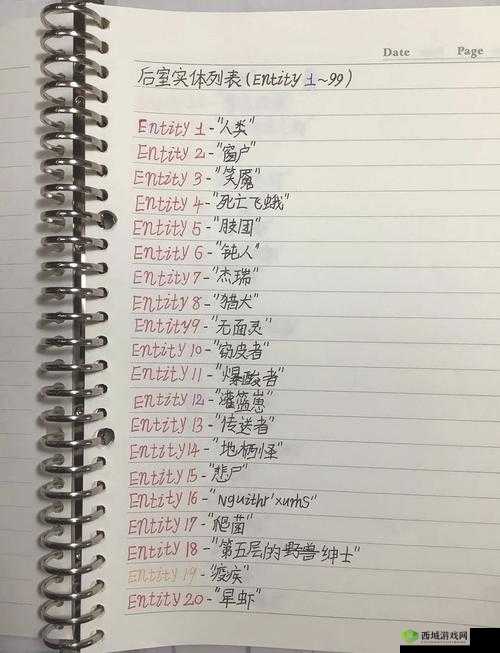 Date Page
后室实体列表(Entity 1~99)
Entity 1-"人类"
Entity 2-"窗户"
Entity 3-"笑魇"
Entity 4-"死亡飞蛾"
Entity 5-"肢团"
Entity 6-"钝人"
Entity 7-"杰瑞"
Entity 8-"猎犬"
Entity 9-"无面灵"
Entity 10-"窃皮者"
Entity 11-"爆酸者"
Entity 12-"灌篮崽"
Entity 13-"传送者"
Entity 14-"地栖怪"
Entity 15-"悲尸"
Entity 16-"Nguithr'xurhS"
Entity 17-"爬菌"
Entity 18-"第五层的野兽绅士"
Entity 19-"疫疾"
Entity 20-"旱虾"
西域游戏网